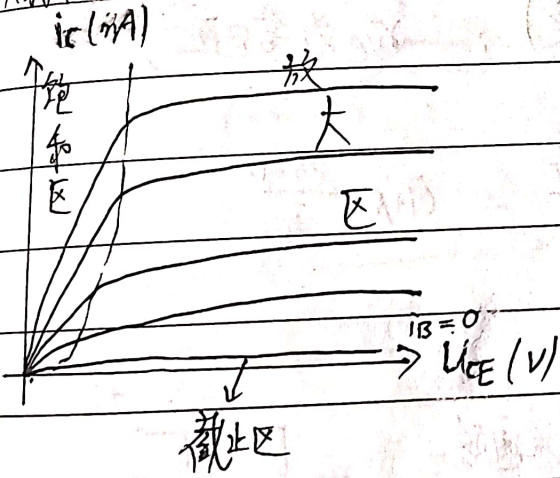 ic(mA)
饱和区
放大区
iB=0
UCE(V)
截止区